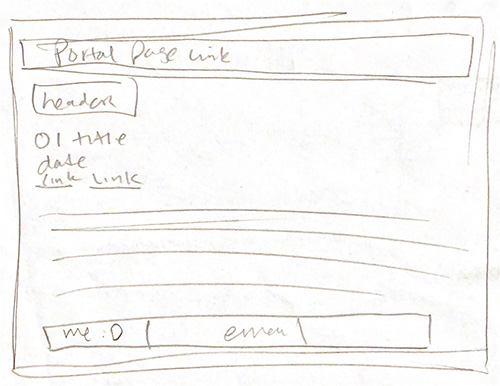 Portal Page Link
header
01 title
date
link link
me :D email